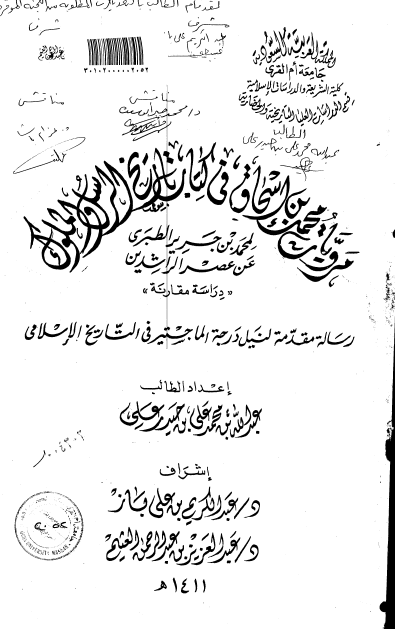 لقد قام الطالب
مشرف
مشرف
المملكة العربية السعودية
جامعة أم القرى
كلية الشريعة والدراسات الإسلامية
قسم الدراسات العليا التاريخية والحضارية
الطالب
مناقش
مناقش
٣٠١٠٢٠٠٠٠٠٢٠٥٢
مرويات محمد بن إسحاق في كتاب تاريخ الرسل والملوك
لمحمد بن جرير الطبري
عن عصر الراشدين
« دراسة مقارنة »
رسالة مقدمة لنيل درجة الماجستير في التاريخ الإسلامي
إعداد الطالب
عبد الله بن محمد علي بن حيدر علي
إشراف
د/ عبد الكريم بن علي باز
د/ عبد العزيز بن عبد الرحمن العثيم
١٤١١ هـ